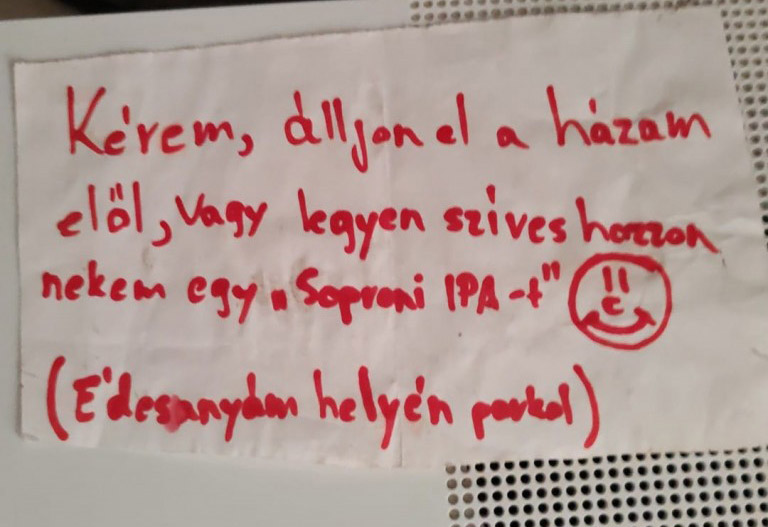 Kérem, álljon el a házam
elől, vagy legyen szíves hozzon
nekem egy „Soproni IPA-t"
(Édesanyám helyén parkol)